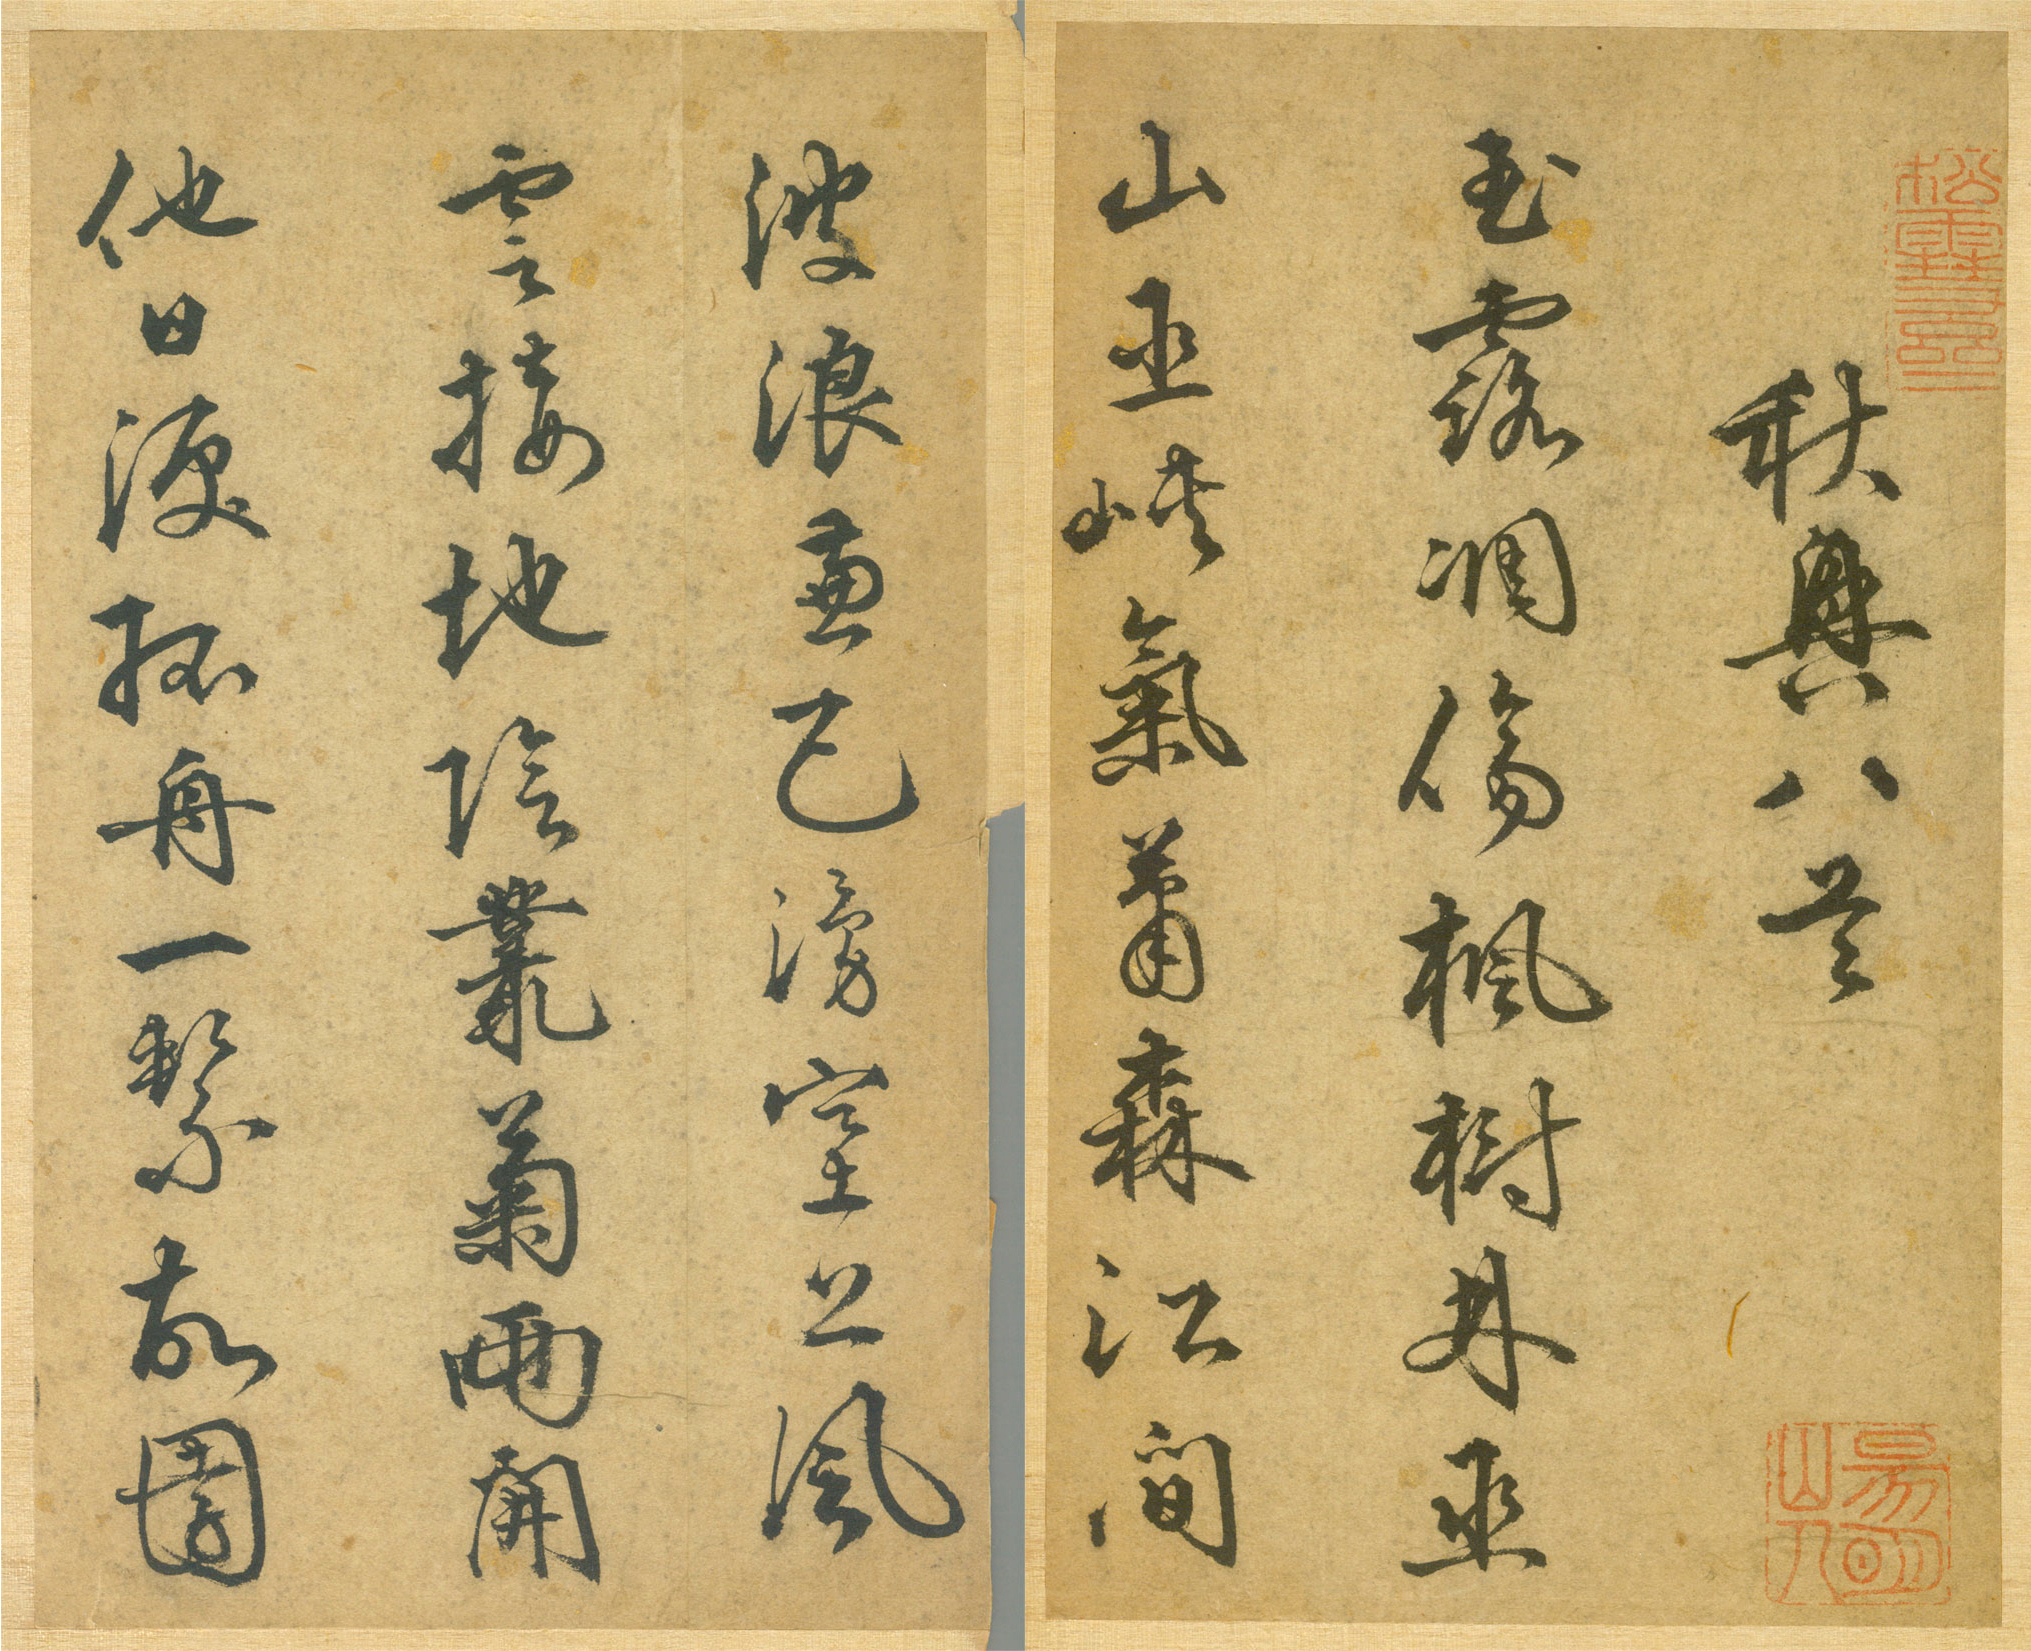 秋興八首
玉露凋傷楓樹林巫
山巫峽氣蕭森江間
波浪兼天湧塞上風
雲接地陰叢菊兩開
他日淚孤舟一繫故園